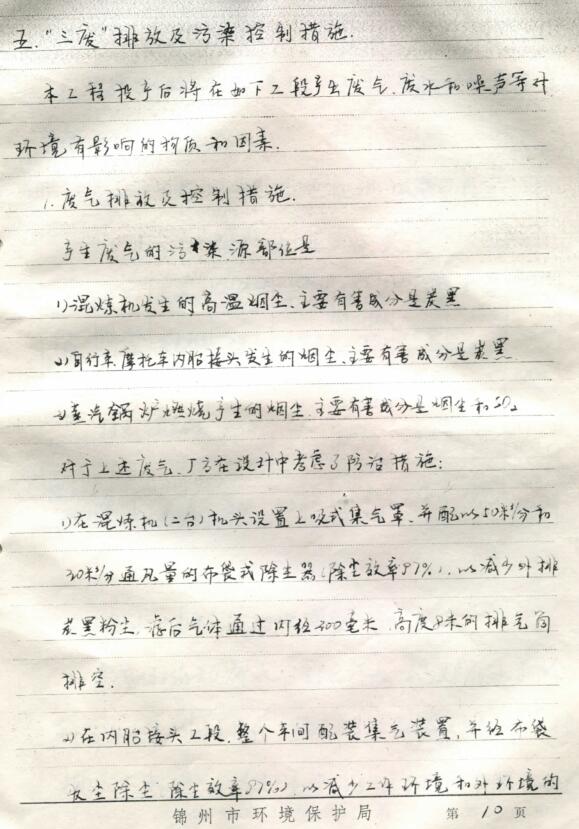 五."三废"排放及污染控制措施.
本工程投产后将在如下工段产生废气、废水和噪声等对
环境有影响的物质和因素.
1.废气排放及控制措施.
产生废气的污染源部位是
1)混炼机发生的高温烟尘、主要有害成分是炭黑
2)自行车、摩托车内胎接头发生的烟尘、主要有害成分是炭黑
3)蒸汽锅炉燃烧产生的烟尘、主要有害成分是烟尘和SO₂
对于上述废气、厂方在设计中考虑了防治措施:
1)在混炼机(二台)机头设置上吸式集气罩、并配以50米³/分和
30米³/分通风量的布袋式除尘器(除尘效率97%)、以减少外排
炭黑粉尘,滤后气体通过内径300毫米、高度8米的排气筒
排空.
2)在内胎接头工段、整个车间配装集气装置,并经布袋
除尘 除尘效率97%)、以减少工作环境和外环境的
锦州市环境保护局 第10页